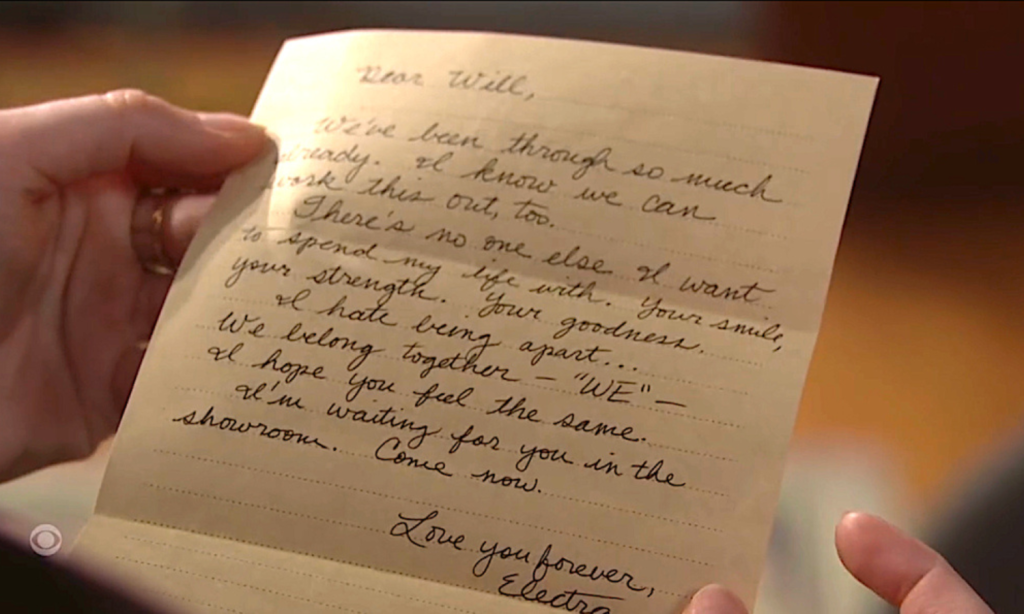 Dear Will,
We've been through so much
already. I know we can
work this out, too.
There's no one else I want
to spend my life with. Your smile,
your strength. Your goodness.
I hate being apart...
We belong together – "WE" –
I hope you feel the same.
I'm waiting for you in the
showroom. Come now.
Love you forever,
Electra